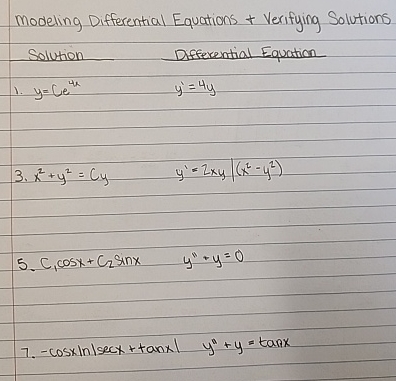 Modeling Differential Equations + Verifying Solutions
Solution Differential Equation
1. y=Ce^4x y'=4y
3. x² + y² = Cy y' = 2xy/(x² - y²)
5. C₁cosx + C₂ sinx y" + y = 0
7. -cosxln|secx + tanx| y" + y = tanx